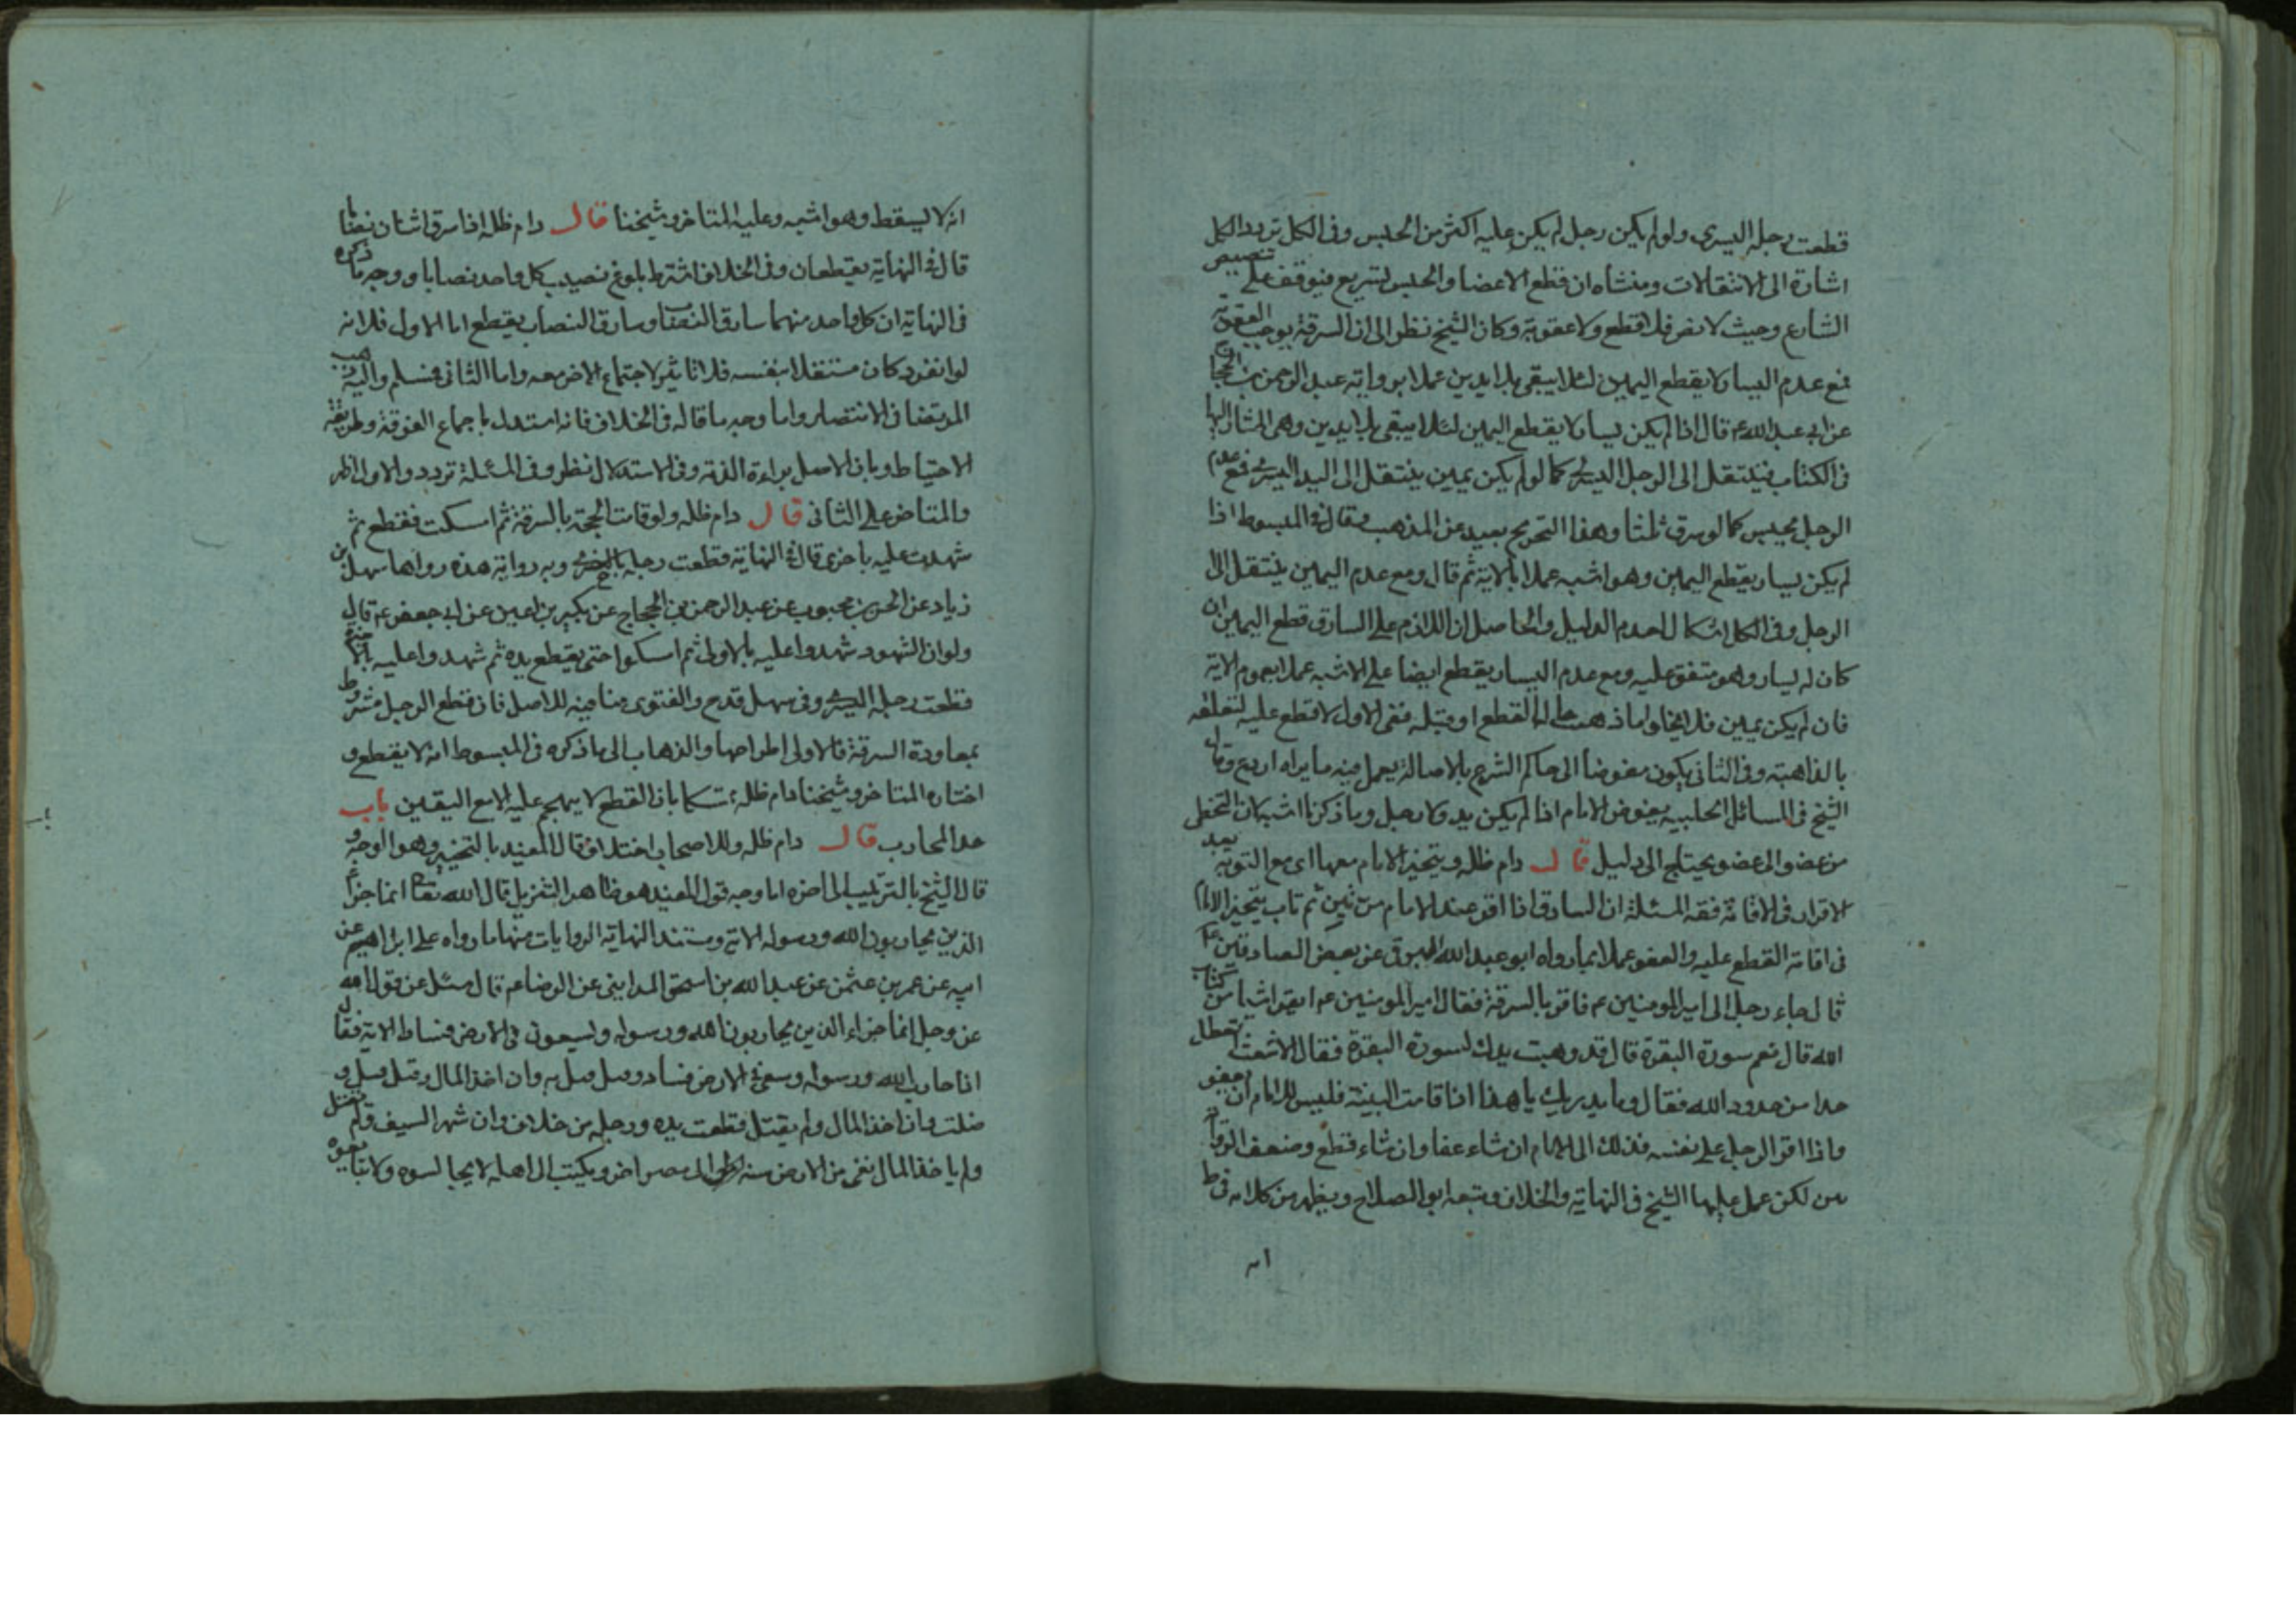 قطعت رجله اليسرى ولو لم يكن رجل لم يكن عليه اكثر من الحبس وفى الكل تردد الكل
اشارة الى الانتقالات ومنشاه ان قطع الاعضا والحبس تشريع فيتوقف على تنصيص
الشارع وحيث لا نص فلا قطع ولا عقوبة وكان الشيخ نظر الى ان السرقة يوجب العقوبة
فمع عدم اليسار لا يقطع اليمين لئلا يبقى بلا يدين عملا برواية عبد الرحمن بن الحجاج
عن ابى عبد الله ع قال اذا لم يكن يسار لا يقطع اليمين لئلا يبقى بلا يدين وهى المشار اليها
فى الكتاب فينتقل الى الرجل اليسرى كما لو لم يكن يمين ينتقل الى اليد اليسرى فمع عدم
الرجل يحبس كما لو سرق ثلثا وهذا التخريج بعيد عن المذهب وقال فى المبسوط اذا
لم يكن يسار يقطع اليمين وهو اشبه عملا بالاية ثم قال ومع عدم اليمين ينتقل الى
الرجل وفى الكل اشكال لعدم الدليل والحاصل ان اللازم على السارق قطع اليمين ان
كان له يسار وهو متفق عليه ومع عدم اليسار يقطع ايضا على الاشبه عملا بعموم الاية
فان لم يكن يمين فلا يخلو اما ذهبت حالة القطع او قبله ففى الاول لا قطع عليه لتعلقه
بالذاهبة وفى الثانى يكون مفوضا الى حاكم الشرع بالاصالة يعمل فيه ما يراه اردع وقال
الشيخ فى المسائل الحلبية يفوض الامام اذا لم يكن يد ولا رجل وما ذكرنا اشبه لان التخطى
من عضو الى عضو يحتاج الى دليل قال دام ظله ويتخير الامام معها اى مع التوبة بعد
الاقرار فى الاقامة فقه المسئلة ان السارق اذا اقر عند الامام مرتين ثم تاب يتخير الامام
فى اقامة القطع عليه والعفو عملا بما رواه ابو عبد الله البرقى عن بعض الصادقين ع
قال جاء رجل الى امير المومنين ع فاقر بالسرقة فقال امير المومنين ع اتقرا شيا من كتاب
الله قال نعم سورة البقرة قال قد وهبت يدك لسورة البقرة فقال الاشعث اتعطل
حدا من حدود الله فقال وما يدريك يا هذا اذا قامت البينة فليس للامام ان يعفو
واذا اقر الرجل على نفسه فذلك الى الامام ان شاء عفا وان شاء قطع وضعف الرواية
بين لكن عمل عليها الشيخ فى النهاية والخلاف وتبعه ابو الصلاح ويظهر من كلامه فى ط
انه
انه لا يسقط وهو اشبه وعليه المتاخر وشيخنا قال دام ظله اذا سرق اثنان نصابا
قال فى النهاية يقطعان وفى الخلاف اشترط بلوغ نصيب كل واحد نصابا ووجه ما ذكره
فى النهاية ان كل واحد منهما سارق النصاب وسارق النصاب يقطع اما الاول فلانه
لو انفرد كان مستقلا بنفسه فلا تاثير لاجتماع الاخر معه واما الثانى فمسلم واليه ذهب
المرتضى فى الانتصار واما وجه ما قاله فى الخلاف فانه استدل باجماع الفرقة وطريقة
الاحتياط وبان الاصل براءة الذمة وفى الاستدلال نظر وفى المسئلة تردد والاول اظهر
والمتاخر على الثانى قال دام ظله ولو قامت الحجة بالسرقة ثم امسكت فقطع ثم
شهدت عليه باخرى قال فى النهاية قطعت رجله بالاخرى وبه رواية هذه رواها سهل بن
زياد عن الحسن بن محبوب عن عبد الرحمن بن الحجاج عن بكير بن اعين عن ابى جعفر ع قال
ولو ان الشهود شهدوا عليه بالاولى ثم امسكوا حتى يقطع يده ثم شهدوا عليه بالاخيرة
قطعت رجله اليسرى وفى سهل قدح والفتوى منافيه للاصل فان قطع الرجل مشروط
بمعاودة السرقة فالاولى اطراحها والذهاب الى ما ذكره فى المبسوط انه لا يقطع و
اختاره المتاخر وشيخنا دام ظله تمسكا بان القطع لا يهجم عليه الا مع اليقين باب
حد المحارب قال دام ظله وللاصحاب اختلاف قال المفيد بالتخيير وهو الوجه و
قال الشيخ بالترتيب الى اخره اما وجه قول المفيد هو ظاهر التنزيل قال الله تعالى انما جزاء
الذين يحاربون الله ورسوله الاية ومستند النهاية الروايات منها ما رواه على ابن ابراهيم عن
ابيه عن عمر بن عثمن عن عبيد الله بن اسحق المداينى عن الرضا ع قال سئل عن قول الله
عز وجل انما جزاء الذين يحاربون الله ورسوله ويسعون فى الارض فسادا الاية فقال
اذا حارب الله ورسوله وسعى فى الارض فسادا وقتل قتل به وان اخذ المال وقتل قتل و
صلب وان اخذ المال ولم يقتل قطعت يده ورجله من خلاف وان شهر السيف ولم يقتل
ولم ياخذ المال نفى من الارض سنة الى مصر اخر ويكتب الى اهله لا يجالسوه ولا يبايعوه